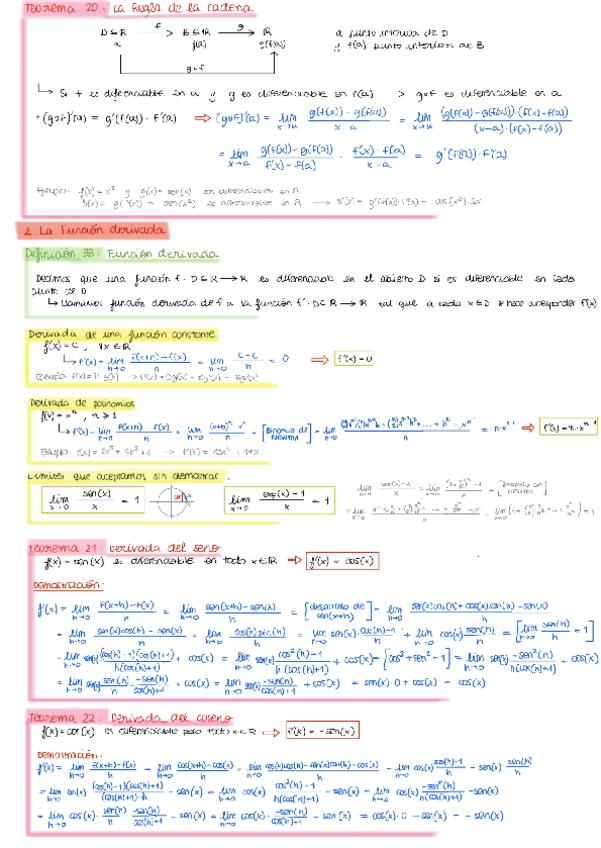 Teorema 20: La Regla de la cadena.
D⊆R →f B⊆R →g R
a f(a) g(f(a))
a punto interior de D
y f(a) punto interior de B
g∘f
↳ Si f es diferenciable en a y g es diferenciable en f(a) → g∘f es diferenciable en a
• (g∘f)'(a) = g'(f(a)) · f'(a) ⇒ (g∘f)'(a) = lim x→a (g(f(x)) - g(f(a)))/(x-a) = lim x→a ((g(f(x)) - g(f(a)))·(f(x)-f(a)))/((x-a)·(f(x)-f(a)))
= lim x→a (g(f(x)) - g(f(a)))/(f(x)-f(a)) · (f(x)-f(a))/(x-a) = g'(f(a))·f'(a)
Ejemplo: f(x) = x² y g(x) = sen(x) son diferenciables en R
h(x) = g(f(x)) = sen(x²) es diferenciable en R → h'(x) = g'(f(x))·f'(x) = cos(x²)·2x
2. La Función derivada
Definición 33: Función derivada
Decimos que una función f: D⊆R → R es diferenciable en el abierto D si es diferenciable en cada
punto de D
↳ Llamamos función derivada de f a la función f': D⊆R → R tal que a cada x∈D le hace corresponder f'(x)
Derivada de una función constante
f(x) = c, ∀x∈R
↳ f'(x) = lim h→0 (f(x+h) - f(x))/h = lim h→0 (c-c)/h = 0 ⇒ f'(x) = 0
Derivada de polinomios
f(x) = xⁿ, n ≥ 1
↳ f'(x) = lim h→0 (f(x+h) - f(x))/h = lim h→0 ((x+h)ⁿ - xⁿ)/h = [Binomio de Newton] = lim h→0 = n·xⁿ⁻¹ ⇒ f'(x) = n·xⁿ⁻¹
Límites que aceptamos sin demostrar.
lim x→0 sen(x)/x = 1
lim x→0 (exp(x) - 1)/x = 1
Teorema 21: Derivada del seno
f(x) = sen(x) es diferenciable en todo x∈R ⇒ f'(x) = cos(x)
Demostración:
f'(x) = lim h→0 (f(x+h) - f(x))/h = lim h→0 (sen(x+h) - sen(x))/h = [desarrollo de sen(x+h)] = lim h→0 (sen(x)cos(h) + cos(x)sen(h) - sen(x))/h
= lim h→0 (sen(x)cos(h) - sen(x))/h + lim h→0 (cos(x)sen(h))/h = lim h→0 sen(x)·(cos(h)-1)/h + lim h→0 cos(x)·sen(h)/h = [lim h→0 sen(h)/h = 1]
= lim h→0 sen(x)·((cos(h)-1)(cos(h)+1))/(h(cos(h)+1)) + cos(x) = lim h→0 sen(x)·(cos²(h)-1)/(h(cos(h)+1)) + cos(x) = [cos²+sen²=1] = lim h→0 sen(x)·(-sen²(h))/(h(cos(h)+1)) + cos(x)
= lim h→0 sen(x)·sen(h)/h·(-sen(h))/(cos(h)+1) + cos(x) = lim h→0 sen(x)·(-sen(h))/(cos(h)+1) + cos(x) = sen(x)·0 + cos(x) = cos(x)
Teorema 22: Derivada del coseno
f(x) = cos(x) es diferenciable para todo x∈R ⇒ f'(x) = -sen(x)
Demostración:
f'(x) = lim h→0 (f(x+h) - f(x))/h = lim h→0 (cos(x+h) - cos(x))/h = lim h→0 (cos(x)cos(h) - sen(x)sen(h) - cos(x))/h = lim h→0 cos(x)·(cos(h)-1)/h - sen(x)·sen(h)/h
= lim h→0 cos(x)·((cos(h)-1)(cos(h)+1))/((cos(h)+1)·h) - sen(x) = lim h→0 cos(x)·(cos²(h)-1)/(h(cos(h)+1)) - sen(x) = lim h→0 cos(x)·(-sen²(h))/(h(cos(h)+1)) - sen(x)
= lim h→0 cos(x)·sen(h)/h·(-sen(h))/(cos(h)+1) - sen(x) = lim h→0 cos(x)·(-sen(h))/(cos(h)+1) - sen(x) = cos(x)·0 - sen(x) = -sen(x)